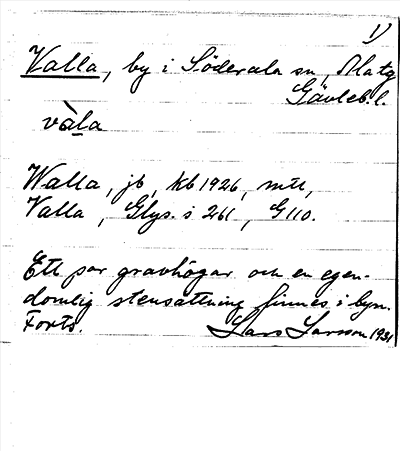 1)
Valla, by i Söderala sn, Ala tg
Gävleb. l.
våla
Walla, jb, kb 1926, mtl,
Valla, Glys. s 261, G 110.
Ett par gravhögar och en egen-
domlig stensättning finnes i byn.
Forts. Lars Larsson 1931